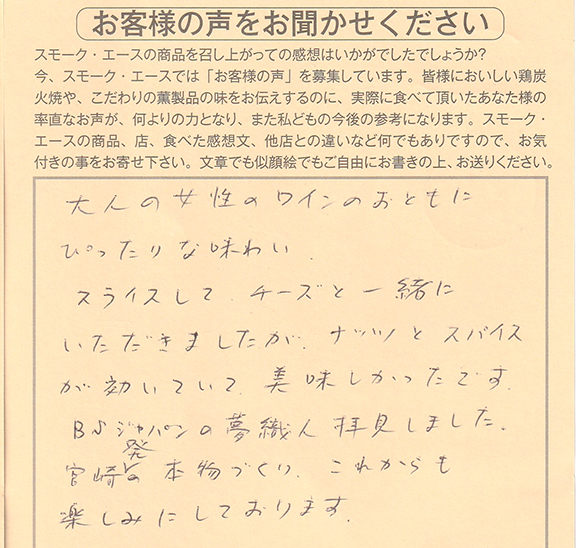 お客様の声をお聞かせください
スモーク・エースの商品を召し上がっての感想はいかがでしたでしょうか?
今、スモーク・エースでは「お客様の声」を募集しています。皆様においしい鶏炭
火焼や、こだわりの薫製品の味をお伝えするのに、実際に食べて頂いたあなた様の
率直なお声が、何よりの力となり、また私どもの今後の参考になります。スモーク・
エースの商品、店、食べた感想文、他店との違いなど何でもありですので、お気
付きの事をお寄せ下さい。文章でも似顔絵でもご自由にお書きの上、お送りください。
大人の女性のワインのおともに
ぴったりな味わい.
スライスして.チーズと一緒に
いただきましたが.ナッツとスパイス
が効いていて.美味しかったです.
BSジャパンの夢織人拝見しました.
宮崎発の本物づくり.これからも
楽しみにしております.